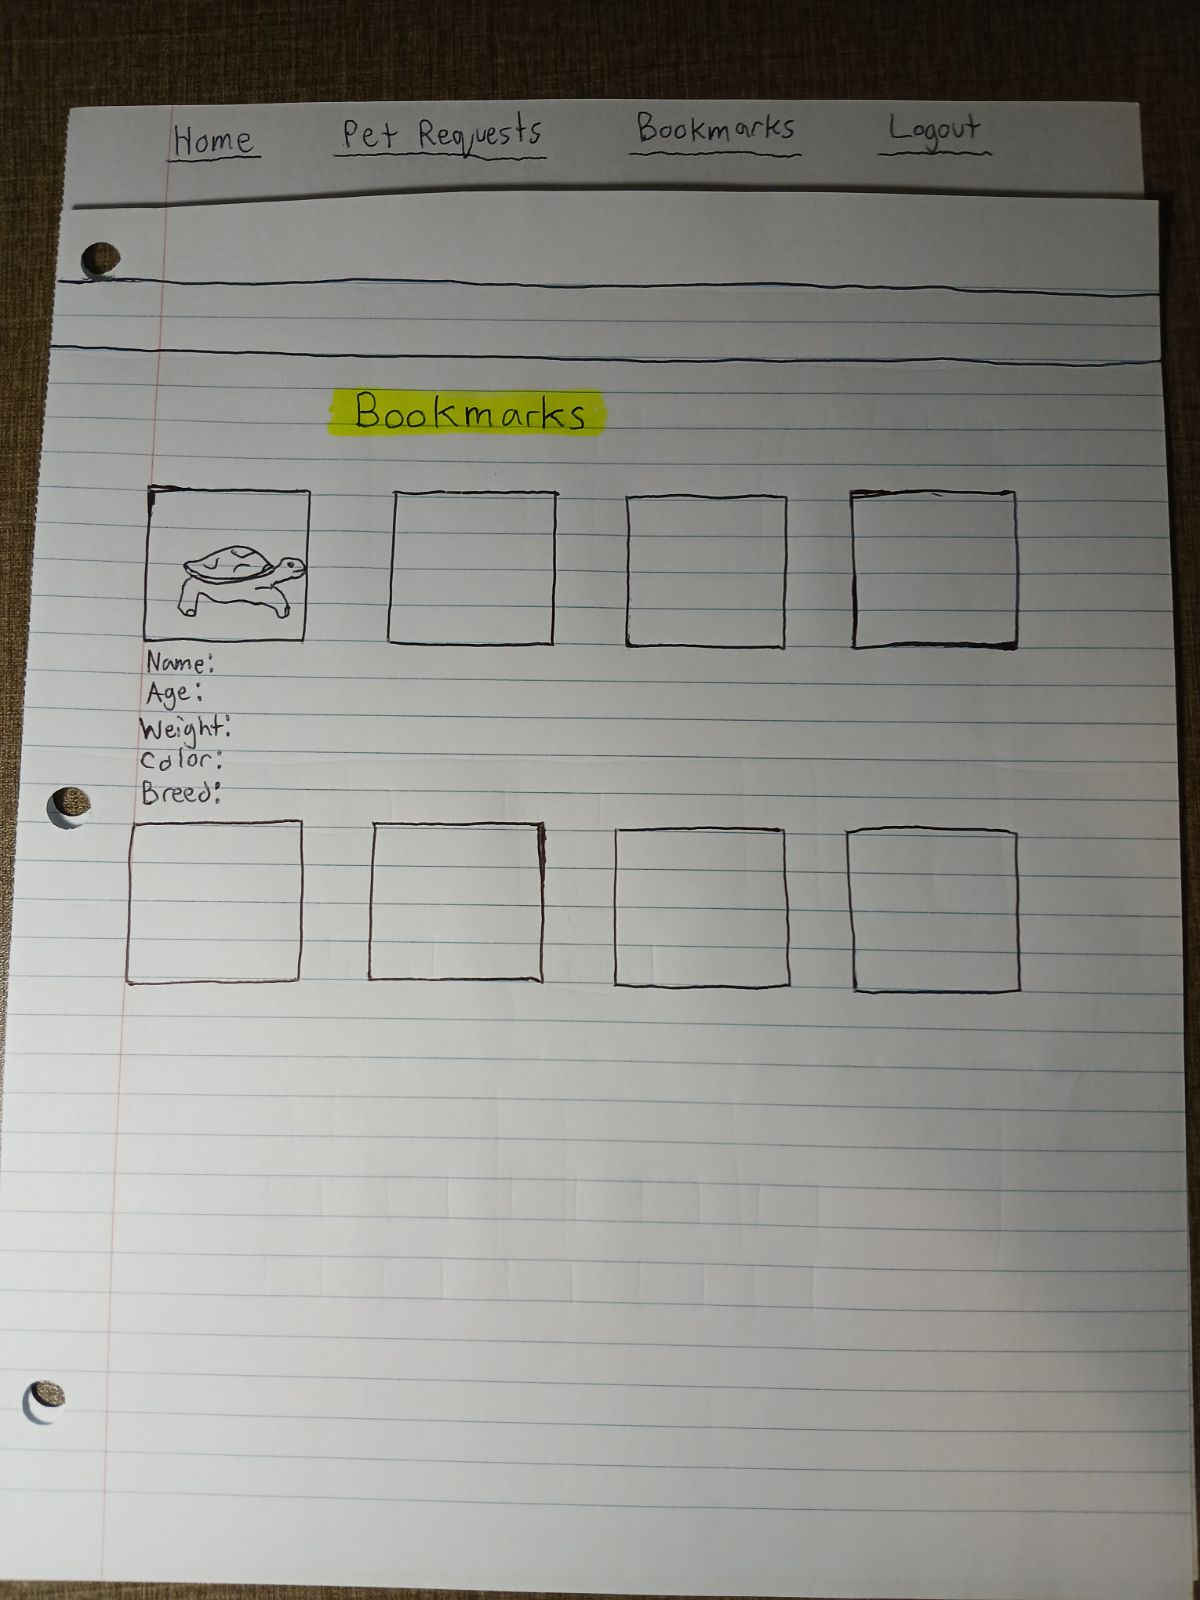 Home Pet Requests Bookmarks Logout
Bookmarks
Name:
Age:
Weight:
Color:
Breed: